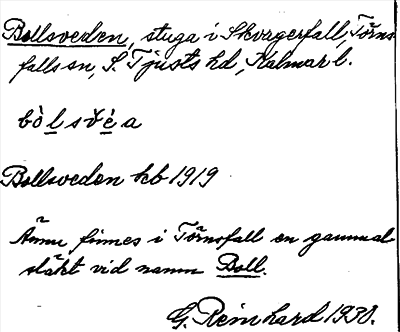 Bollsveden, stuga i Skorgerfall, Törns-
falls sn, S. Tjusts hd, Kalmar l.
bòlsv̆éa
Bollsveden hb 1919
Ännu finnes i Törnsfall en gammal
släkt vid namn Boll.
G. Reinhard 1930.